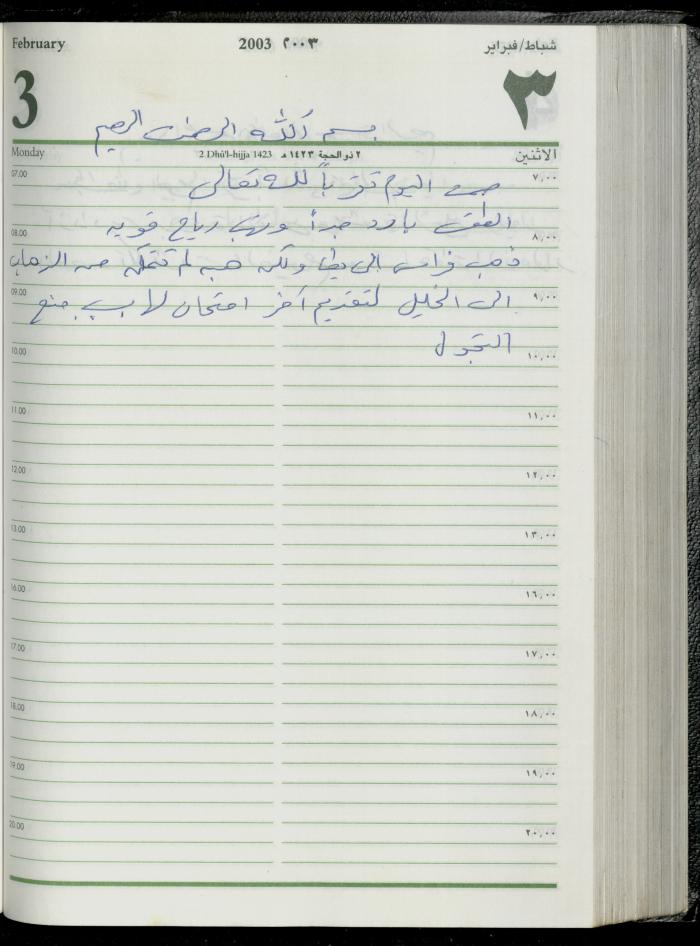 February 2003 ٢٠٠٣ شباط/فبراير
3 ٣
بسم الله الرحمن الرحيم
Monday 2 Dhú'l-hijja 1423 ٢ ذو الحجة ١٤٢٣ هـ الاثنين
07.00 ٧,٠٠
صمت اليوم تقرباً لله تعالى
الطقس بارد جداً وتهب رياح قوية
08.00 ٨,٠٠
ذهب فراس الى يطا ولكن هبه لم تتمكن من الذهاب
09.00 ٩,٠٠
الى الخليل لتقديم آخر امتحان لها بسبب منع
التجول
10.00 ١٠,٠٠
11.00 ١١,٠٠
12.00 ١٢,٠٠
13.00 ١٣,٠٠
16.00 ١٦,٠٠
17.00 ١٧,٠٠
18.00 ١٨,٠٠
19.00 ١٩,٠٠
20.00 ٢٠,٠٠